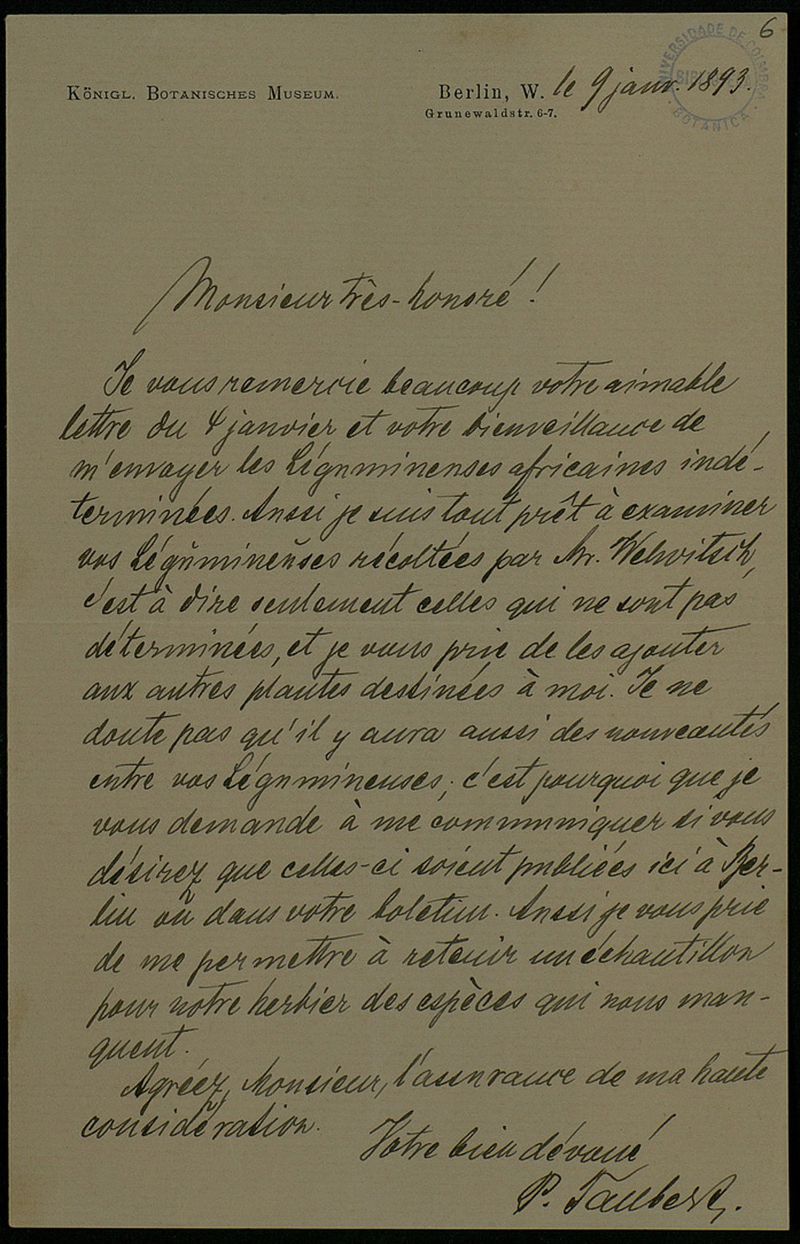 6
UNIVERSIDADE DE COIMBRA
BOTANICA
KÖNIGL. BOTANISCHES MUSEUM.
Berlin, W. le 9 janv. 1893.
Grunewaldstr. 6-7.
Monsieur très-honoré!
Je vous remercie beaucoup votre aimable
lettre du 4 janvier et votre bienveillance de
m'envoyer les Légumineuses africaines indé-
terminées. Aussi je suis tout prêt à examiner
vos Légŭmineŭses récoltées par Mr. Welwitsch,
c'est à dire seulement celles qui ne sont pas
déterminées, et je vous prie de les ajouter
aux autres plantes destinées à moi. Je ne
doute pas qu'il y aura aussi des nouveautés
entre vos Légumineuses; c'est pourquoi que je
vous demande à me communiquer si vous
désirez que celles-ci soient publiées ici à Ber-
lin oŭ dans votre boletim. Aussi je vous prie
de me permettre à retenir un échantillon
pour notre herbier des espèces qui nous man-
quent.
Agréez, Monsieur, l'assurance de ma haute
considération.
Votre bien dévoué
P. Taubert.